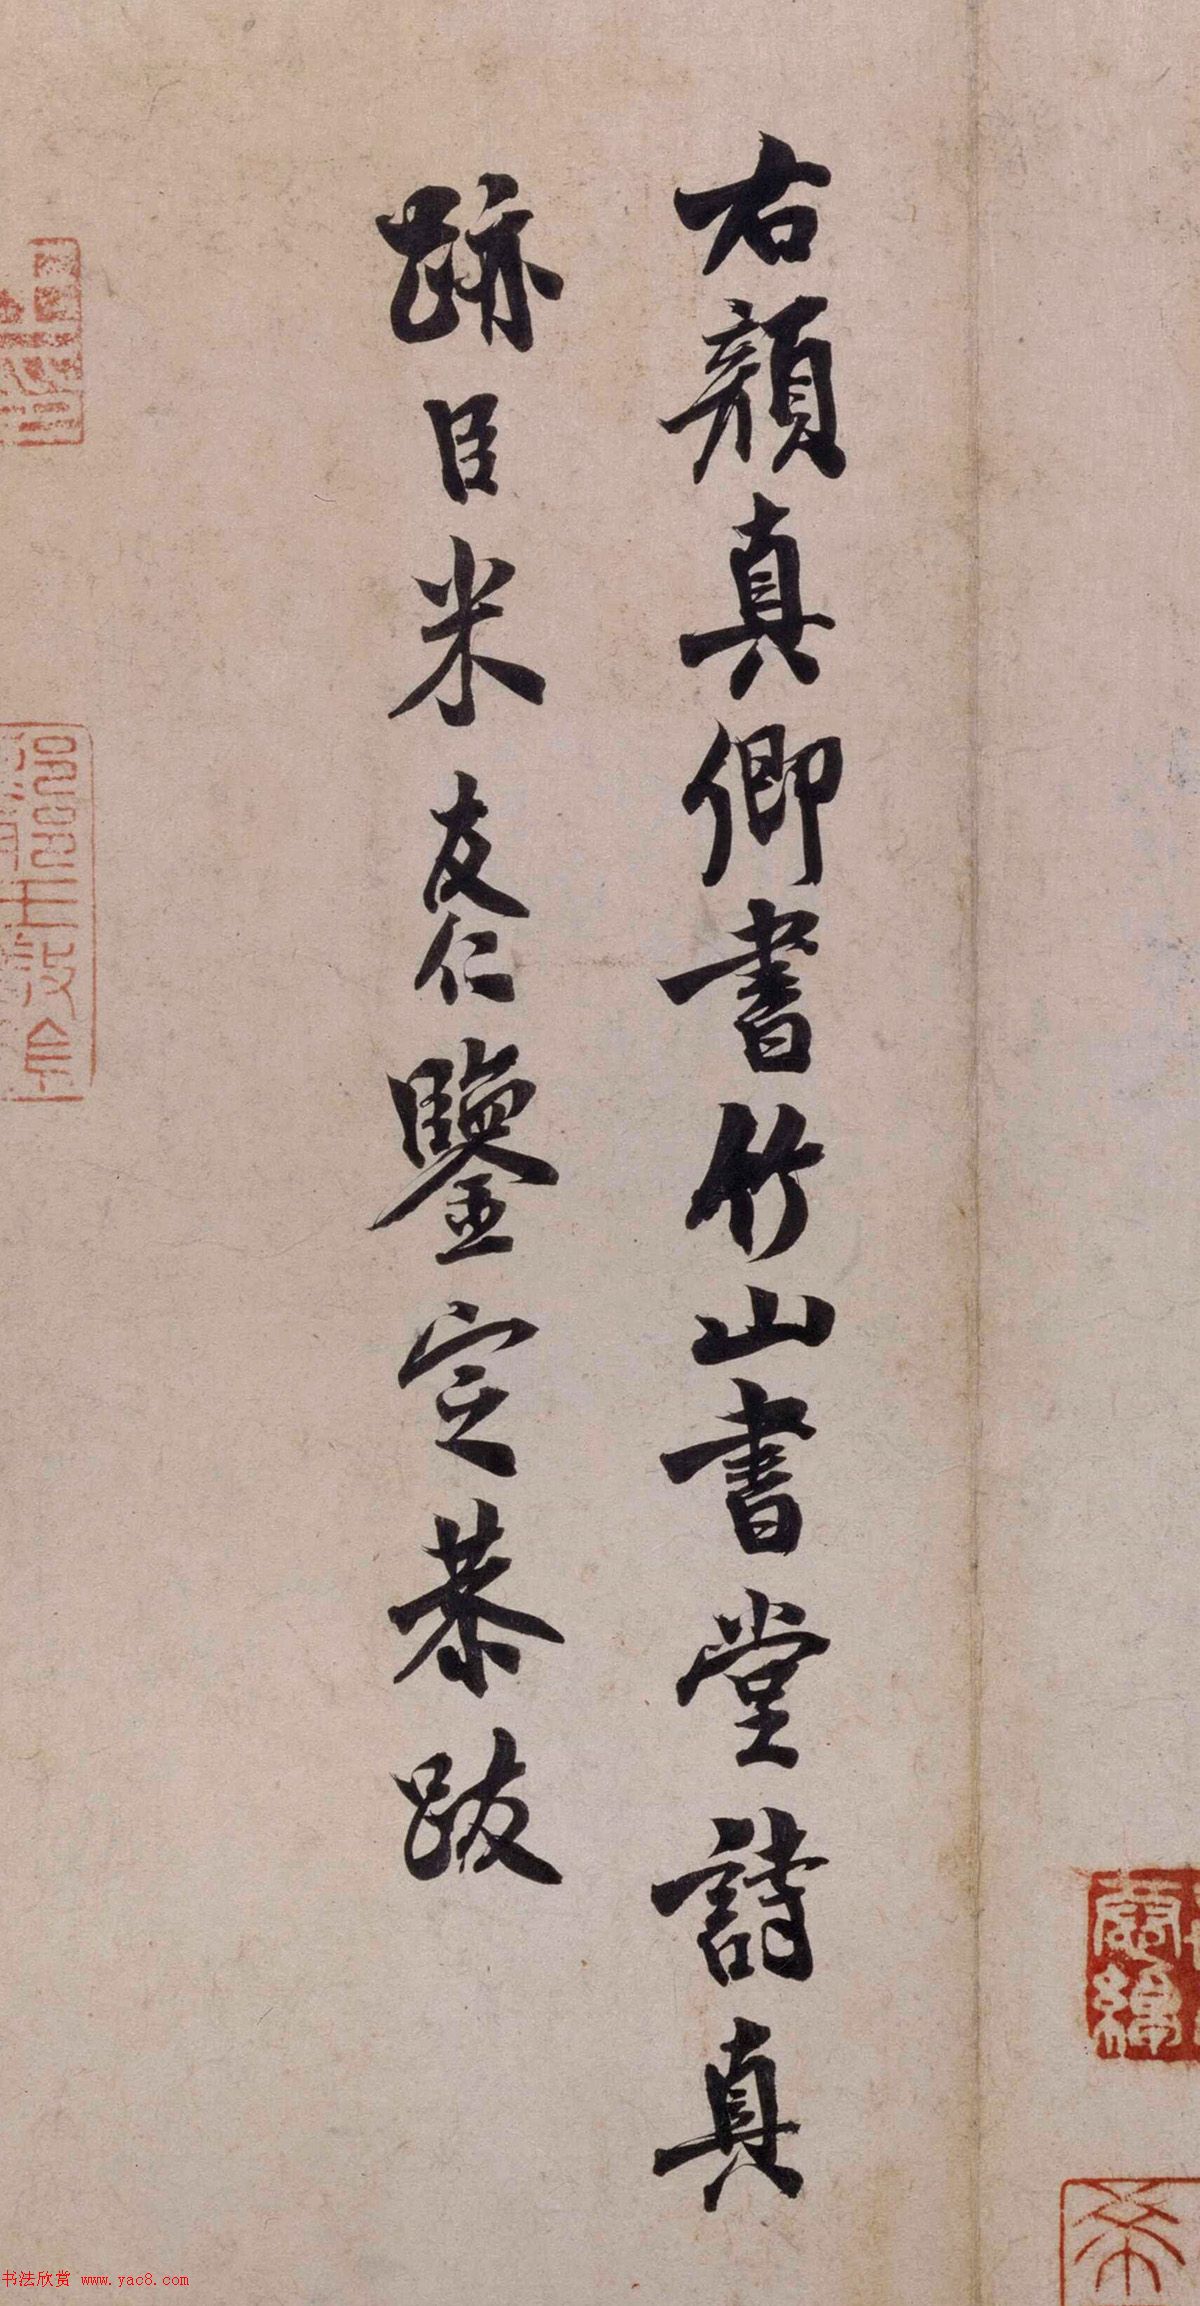 右顏真卿書竹山書堂詩真
跡臣米友仁鑒定恭跋
书法欣赏 www.yac8.com